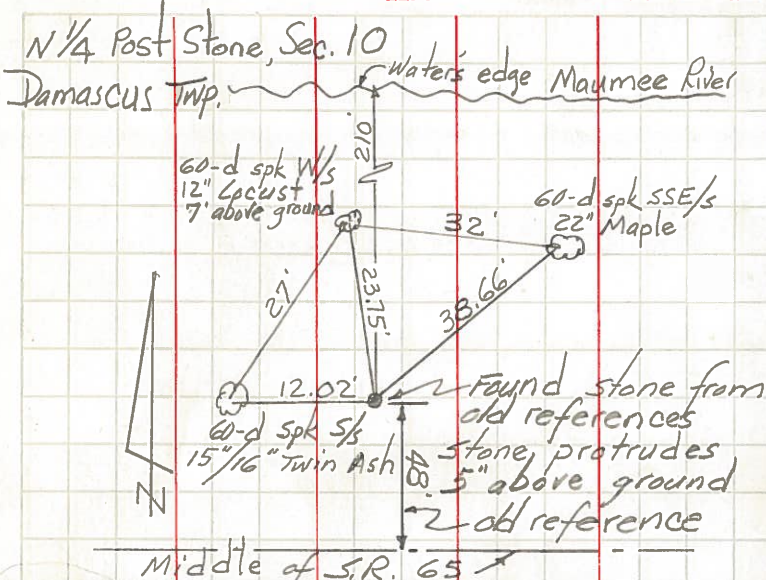 N 1/4 Post Stone, Sec. 10
Damascus Twp.
Water's edge Maumee River
210'
60-d spk W/s
12" Locust
7' above ground
60-d spk SSE/s
22" Maple
32'
27'
23.75'
38.66'
12.02'
60-d Spk S/s
15"/16" Twin Ash
Found stone from
old references
stone protrudes
5" above ground
48'
old reference
N
Middle of S.R. 65